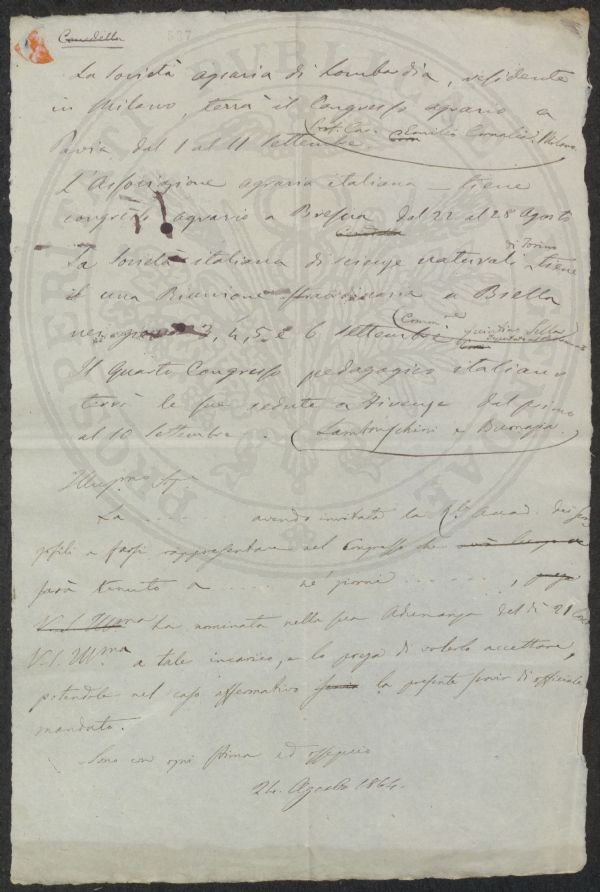 587
La Società agraria di Lombardia, residente
in Milano, terrà il Congresso agrario a
Prof. Cav. Emilio Cornalia Milano
Pavia dal 1 al 11 Settembre
L'Associazione agraria italiana — tiene
congresso agrario a Brescia dal 22 al 28 Agosto
di Torino
La Società italiana di scienze naturali tiene
una Riunione straordinaria a Biella
3, 4, 5 e 6 Settembre Comm.re Quintino Sella
Il quarto Congresso pedagogico italiano
terrà le sue sedute a Firenze dal primo
al 10 Settembre. Lambruschini e Buonazia
Illus.mo Sig.
La ........ avendo invitata la R.le Accad. dei
a farsi rappresentare nel Congresso che
sarà tenuto a ..... ne' giorni ........,
V.S. Ill.ma ha nominata nella sua Adunanza del dì 21
V.S. Ill.ma a tale incarico, e la prega di volerlo accettare,
potendole nel caso affermativo la presente servir di officiale
mandato.
Sono con ogni stima ed ossequio
24 Agosto 1864.